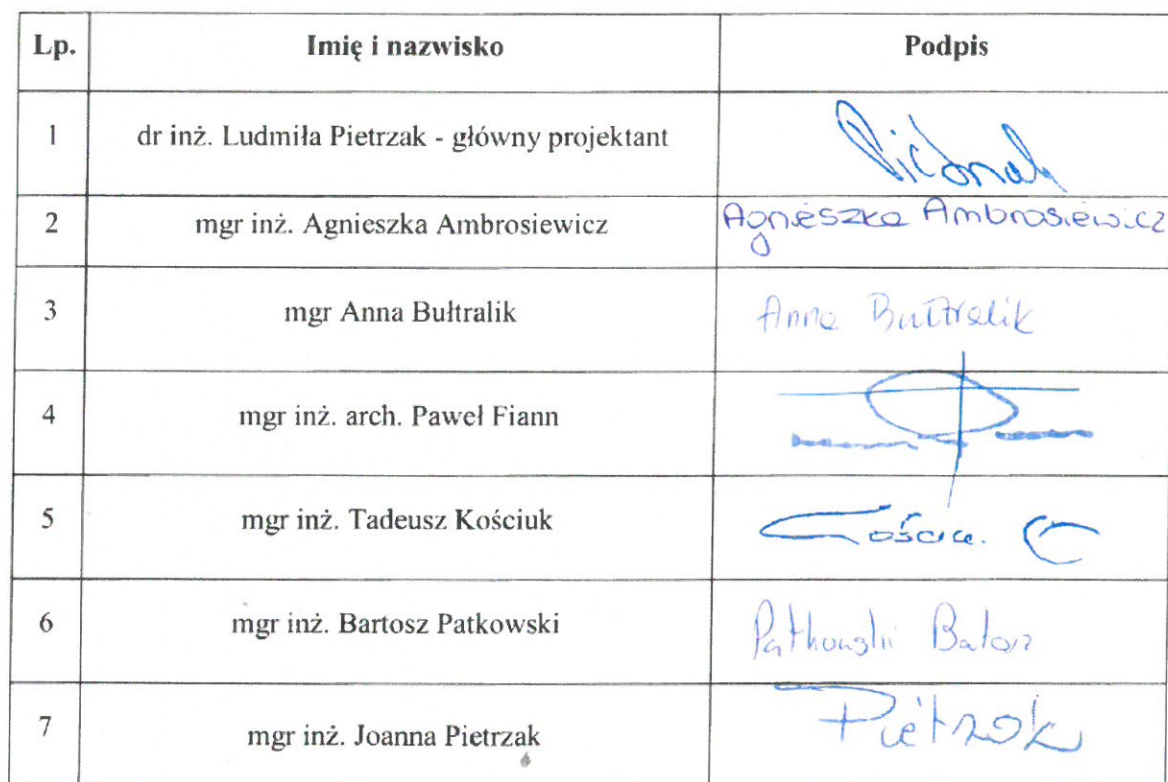 Lp. Imię i nazwisko Podpis
1 dr inż. Ludmiła Pietrzak - główny projektant
2 mgr inż. Agnieszka Ambrosiewicz Agnieszka Ambrosiewicz
3 mgr Anna Bułtralik Anna Bułtralik
4 mgr inż. arch. Paweł Fiann
5 mgr inż. Tadeusz Kościuk
6 mgr inż. Bartosz Patkowski Patkowski
7 mgr inż. Joanna Pietrzak Pietrzak